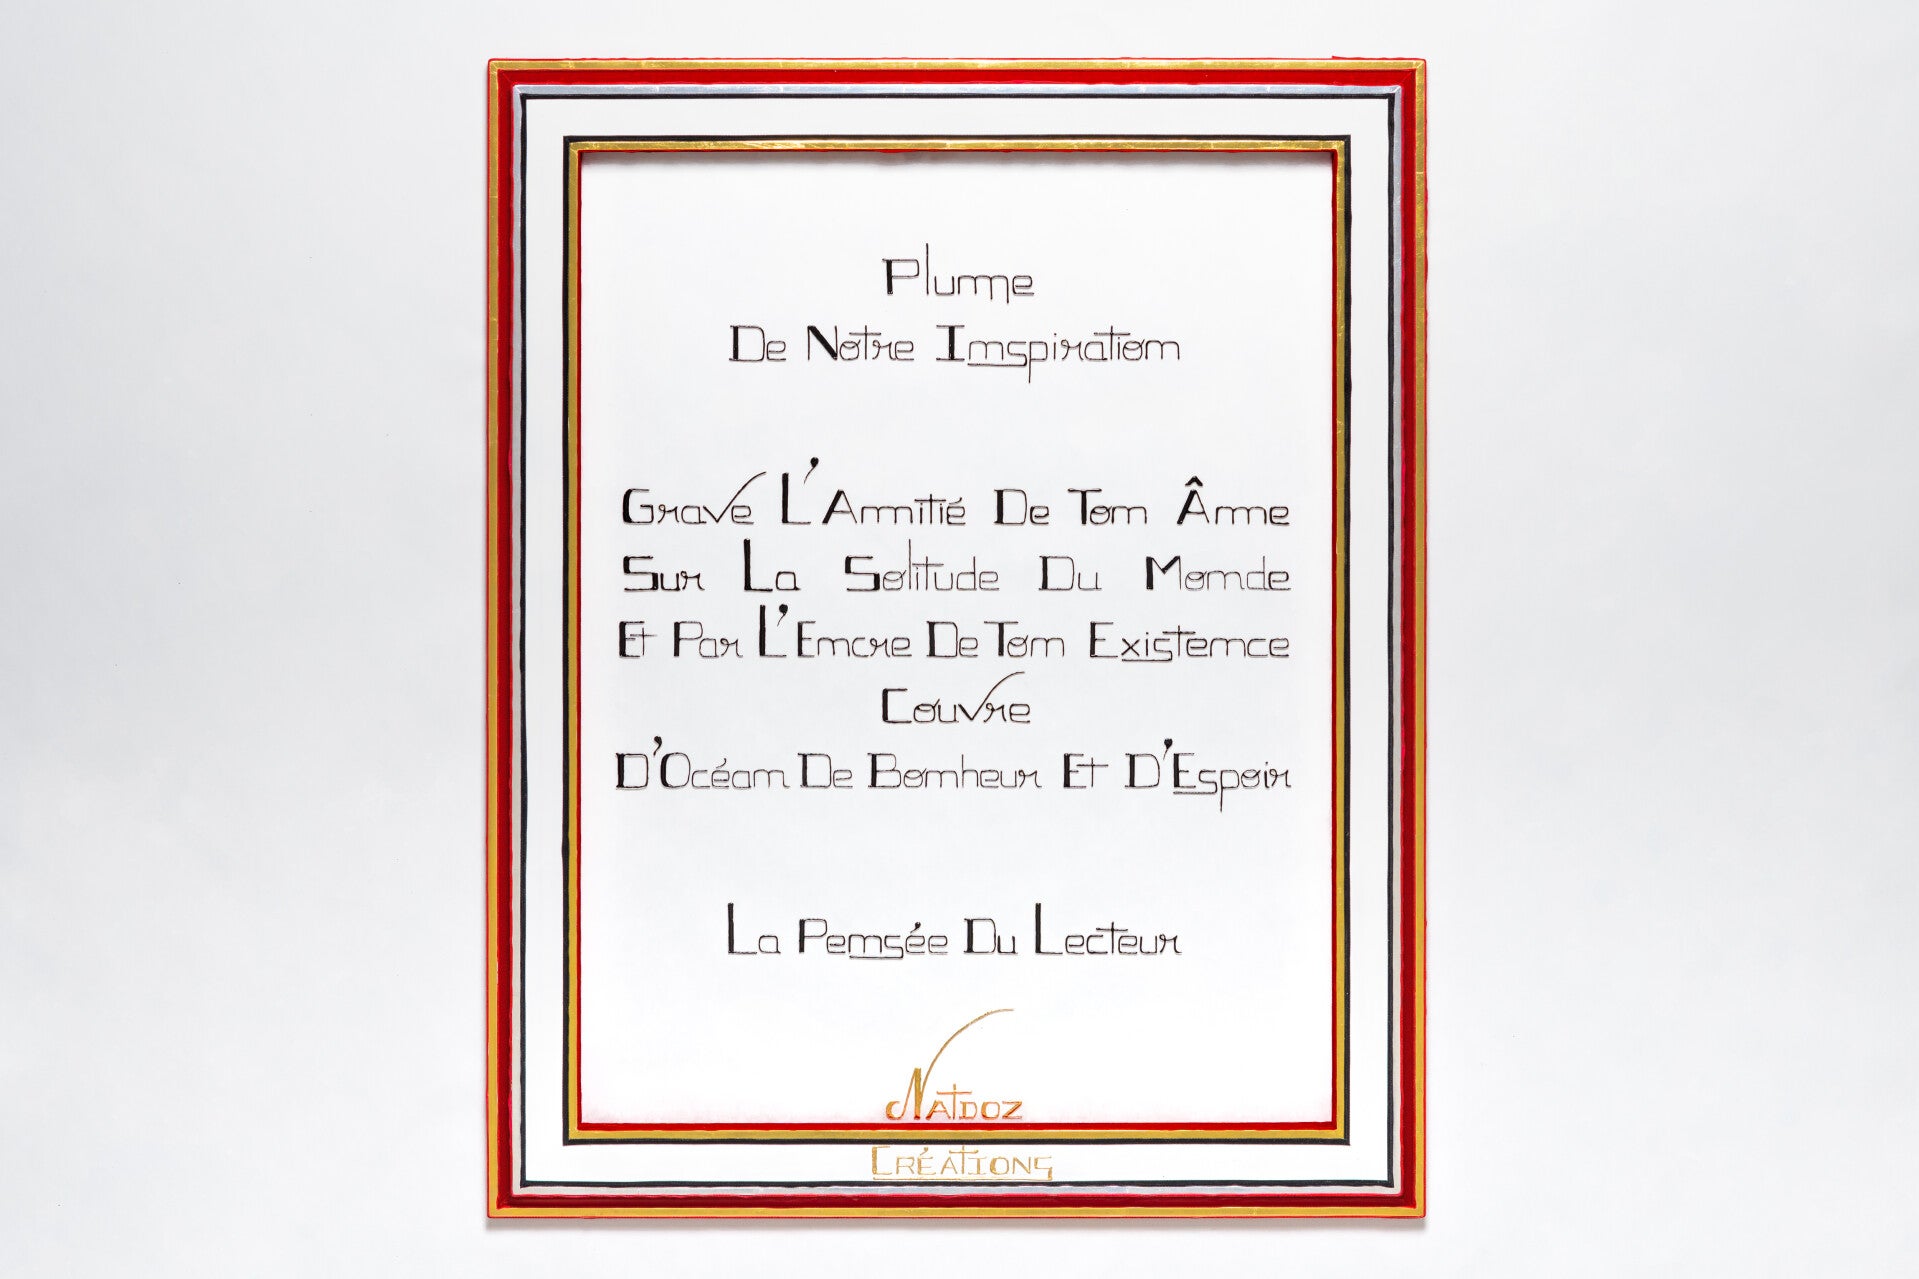 Plume
De Notre Inspiration
Grave L'Amitié De Ton Âme
Sur La Solitude Du Monde
Et Par L'Encre De Ton Existence
Couvre
D'Océan De Bonheur Et D'Espoir
La Pensée Du Lecteur
Natdoz
Créations